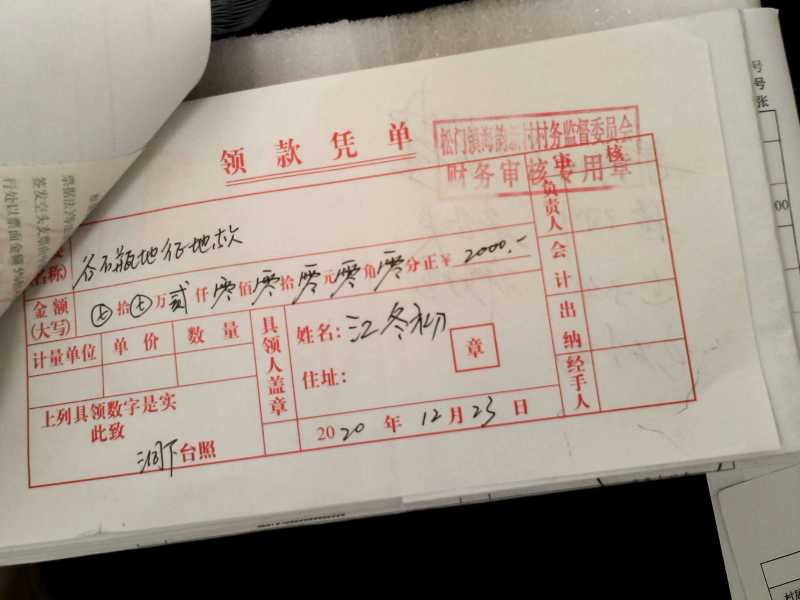 领款凭单
松门镇海韵新村村务监督委员会
财务审核专用章
审核
名称)
谷石瓶地征地款
金额
(大写)
拾 万 贰仟零佰零拾零元零角零分正¥ 2000.-
计量单位 单价 数量
具领人盖章
姓名:江冬初
住址:
章
上列具领数字是实
此致
台照
2020年12月23日
负责人
会计
出纳
经手人
签发空头支票
行处以票面金额5%
号
号
张
00